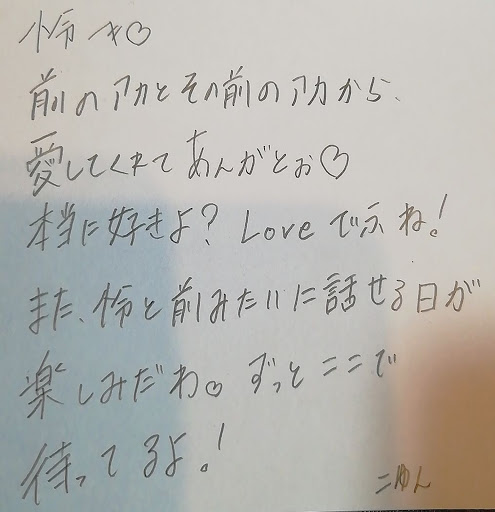 怜へ♡
前のアカとその前のアカから、
愛してくれてあんがとぉ♡
本当に好きよ？Loveですね！
また、怜と前みたいに話せる日が
楽しみだわ♡ずっとここで
待ってるよ！
こゆん